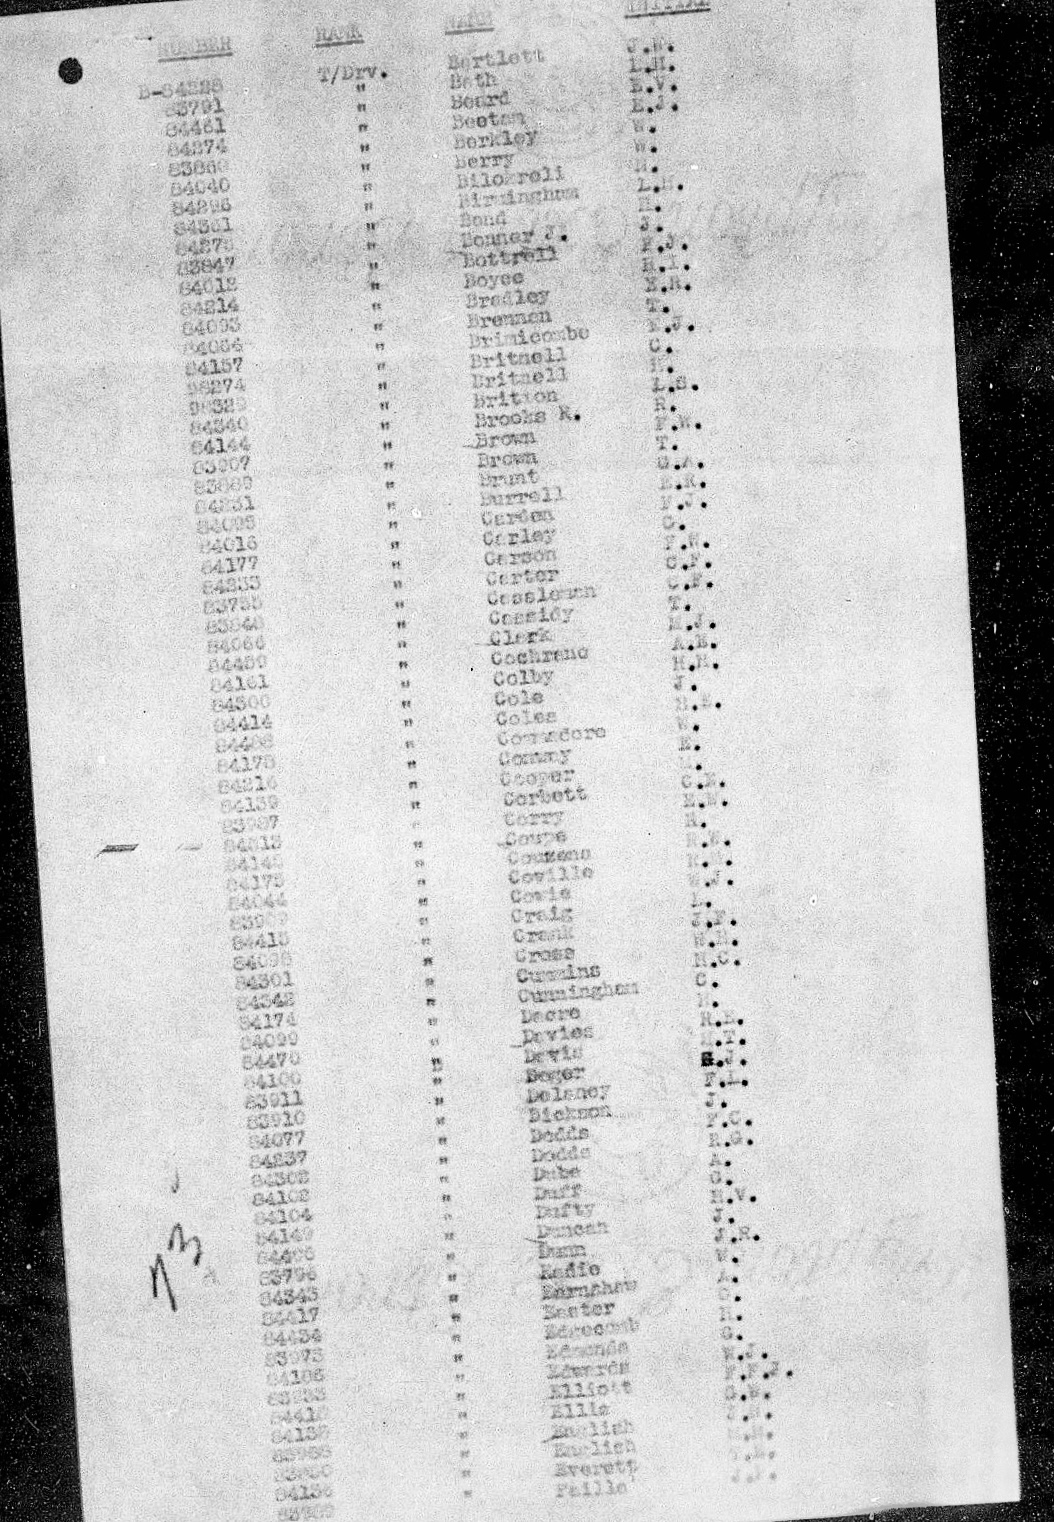 NUMBER RANK NAME INITIAL
B-84228 T/Drv. Bartlett J.W.
83791 " Bath L.H.
84461 " Beard E.V.
84274 " Beeton E.J.
83860 " Berkley W.
84040 " Berry W.
84296 " Bilokreli M.
84361 " Birmingham L.H.
84275 " Bond H.
83847 " Bonner J. J.
84012 " Bottrell E.J.
84214 " Boyce H.I.
84093 " Bradley E.R.
84064 " Brennan T.
84157 " Brimicombe E.J.
98274 " Britnell C.
98329 " Britnell H.
84340 " Britton L.S.
84144 " Brooks R. R.
83907 " Brown F.W.
83889 " Brown T.
84231 " Brunt G.A.
84095 " Burrell E.R.
84016 " Carden F.J.
84177 " Carley C.
84233 " Carson F.W.
83755 " Carter C.F.
83848 " Cassleman C.F.
84066 " Cassidy T.
84459 " Clark M.J.
84161 " Cochrane A.E.
84300 " Colby H.H.
84414 " Cole J.
84408 " Coles H.E.
84178 " Commodore W.
84216 " Conway E.
84139 " Cooper M.
83987 " Corbett C.E.
84313 " Corry E.W.
84145 " Coupe H.
84175 " Couzens R.E.
84044 " Coville H.H.
83909 " Cowie W.J.
84415 " Craig L.
84098 " Crank J.F.
84301 " Cross H.H.
84342 " Cummins H.C.
84174 " Cunningham C.
84099 " Dacre H.
84470 " Davies R.E.
84100 " Davis M.T.
83911 " Deger S.J.
83910 " Delaney F.L.
84077 " Dickson J.
84237 " Dodds F.C.
84302 " Dodds R.G.
84102 " Dube A.
84104 " Duff G.
84149 " Dufty H.V.
84406 " Duncan J.
83796 " Dunn J.R.
84343 " Eadie W.
84417 " Earnshaw A.
84434 " Easter G.
83973 " Edgecomb H.
84106 " Edmonds G.
83233 " Edwards E.J.
84418 " Elliott F.F.J.
84138 " Ellis G.E.
83988 " English J.H.
83850 " English H.H.
84136 " Everett T.E.
83989 " Faille J.F.